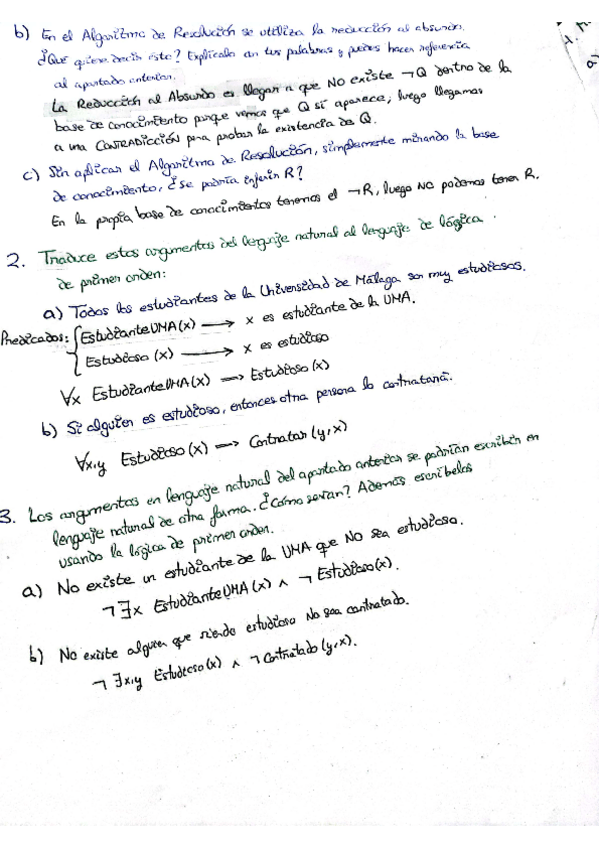 b) En el Algoritmo de Resolución se utiliza la reducción al absurdo.
¿Qué quiere decir ésto? Explícalo en tus palabras y puedes hacer referencia
al apartado anterior.
La Reducción al Absurdo es llegar a que NO existe ¬Q dentro de la
base de conocimiento porque vemos que Q sí aparece, luego llegamos
a una CONTRADICCIÓN para probar la existencia de Q.
c) Sin aplicar el Algoritmo de Resolución, simplemente mirando la base
de conocimiento, ¿se podría inferir R?
En la propia base de conocimientos tenemos el ¬R, luego NO podemos tener R.
2. Traduce estos argumentos del lenguaje natural al lenguaje de lógica
de primer orden:
a) Todos los estudiantes de la Universidad de Málaga son muy estudiosos.
Predicados: { EstudianteUMA(x) ⟶ x es estudiante de la UMA.
Estudioso (x) ⟶ x es estudioso
∀x EstudianteUMA(x) ⟶ Estudioso(x)
b) Si alguien es estudioso, entonces otra persona lo contratará.
∀x,y Estudioso(x) ⟶ Contratar(y,x)
3. Los argumentos en lenguaje natural del apartado anterior se podrían escribir en
lenguaje natural de otra forma. ¿Cómo serían? Además escríbelos
usando la lógica de primer orden.
a) No existe un estudiante de la UMA que NO sea estudioso.
¬∃x EstudianteUMA(x) ∧ ¬Estudioso(x).
b) No existe alguien que siendo estudioso No sea contratado.
¬∃x,y Estudioso(x) ∧ ¬Contratado(y,x).